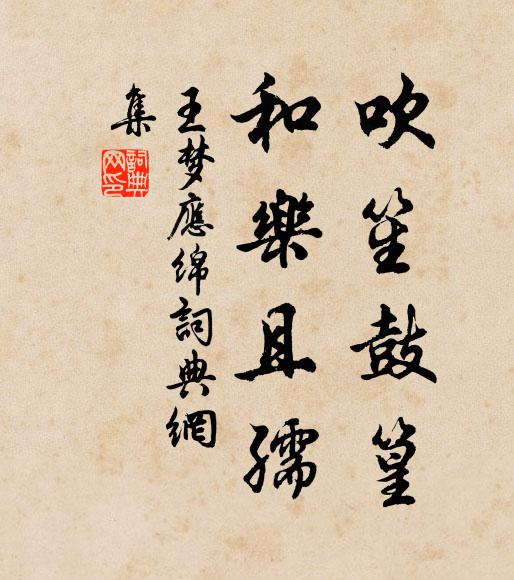 吹笙鼓篁
和樂且孺
王梦應绵詞典網
集
詞典
网印